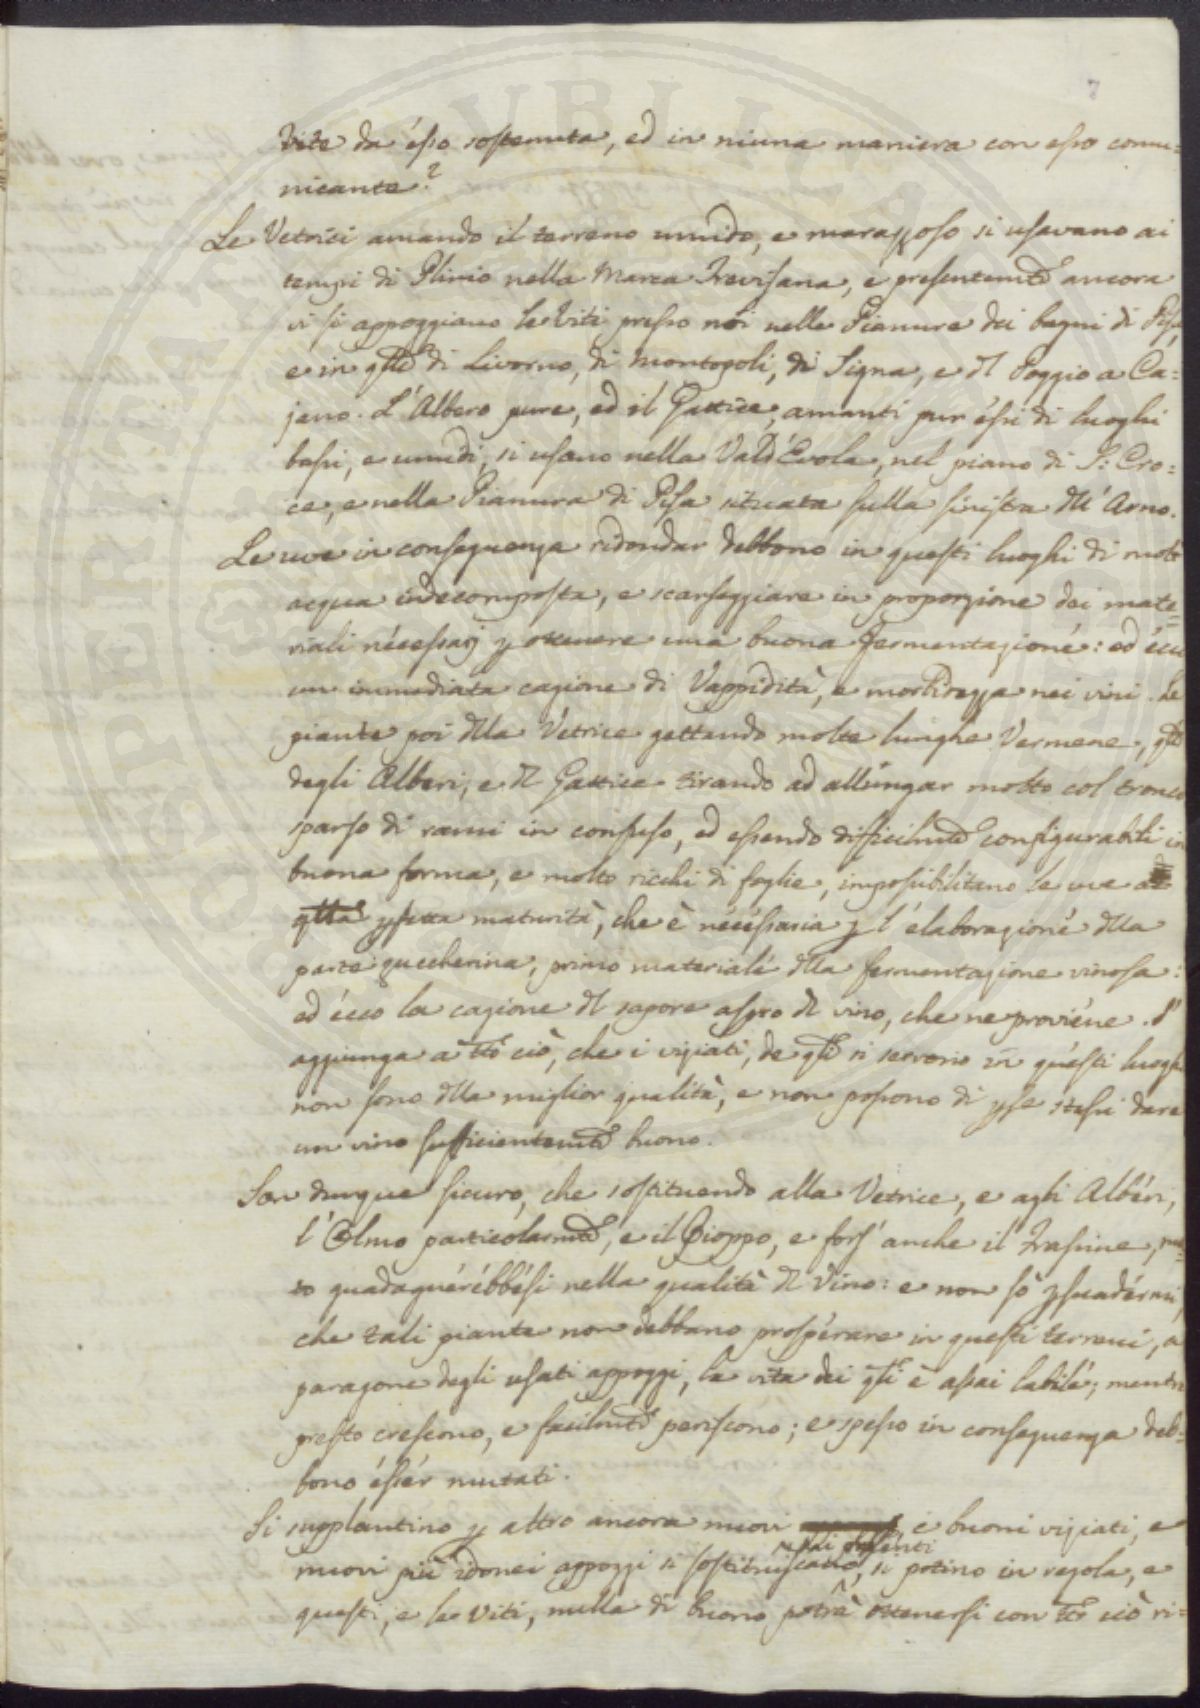 7
Vite da ésso sostenuta, ed in niuna maniera con esso comu=
nicante?
Le Vetrici amando il terreno umido, e marazzoso si usavano ai
tempi di Plinio nella Marca Trevisana, e presentemte ancora
vi si appoggiano le Viti presso noi nelle Pianure dei bagni di Pisa,
e in qlle di Livorno, di Montopoli, di Signa, e dl Poggio a Ca=
jano. L'Albero pure, ed il Gattice, amanti pur éssi di luoghi
bassi, e umidi, si usano nella Val d'Evola, nel piano di S: Cro=
ce, e nella Pianura di Pisa situata sulla sinistra dll'Arno.
Le uve in conseguenza ridondar debbono in questi luoghi di molt
acqua indecomposta, e scarseggiare in proporzione dei mate=
riali nécessarj p ottenere una buona fermentazioné: ed écco
un immediata cagione di Vappidità, e morbidezza nei vini. Le
piante poi dlla Vétrice gettando molte lunghe Vermene, qlle
degli Alberi, e dl Gattice tirando ad allungar molto col tronco
sparso di rami in confuso, ed essendo difficilmte configurabili in
buona forma, e molto ricchi di foglie, impossibilitano le uve a
qlla pfetta maturità, che è nécéssaria p l'élaborazioné dlla
parte zuccherina, primo materialé dlla fermentazione vinosa:
ed écco la cagione dl sapore aspro dl vino, che ne proviéne. S'
aggiunga a tto ciò, che i viziati, de qli si servono in quésti luoghi
non sono dlla miglior qualità, e non possono di pse stessi dare
un vino sufficientemte buono.
Son dunque sicuro, che sostituendo alla Vetrice, e agli Albéri,
l'Olmo particolarmte, e il Pioppo, e fors'anche il Frassine, mol=
to guadagnérébbési nella qualità dl Vino: e non so psuadérmi,
che tali piante non debbano prospérare in questi terreni, a
paragone degli usati appoggi, la vita dei qli è assai labilé; mentre
presto crescono, e facilmte periscono; e spesso in conseguenza deb=
bono ésser mutati.
Si supplantino p altro ancora nuovi e buoni viziati, e
nuovi più idonei appoggi si sostituiscano, si potino in regola, e
questi, e le Viti, nulla di buono potrà ottenersi con tto ciò ri=